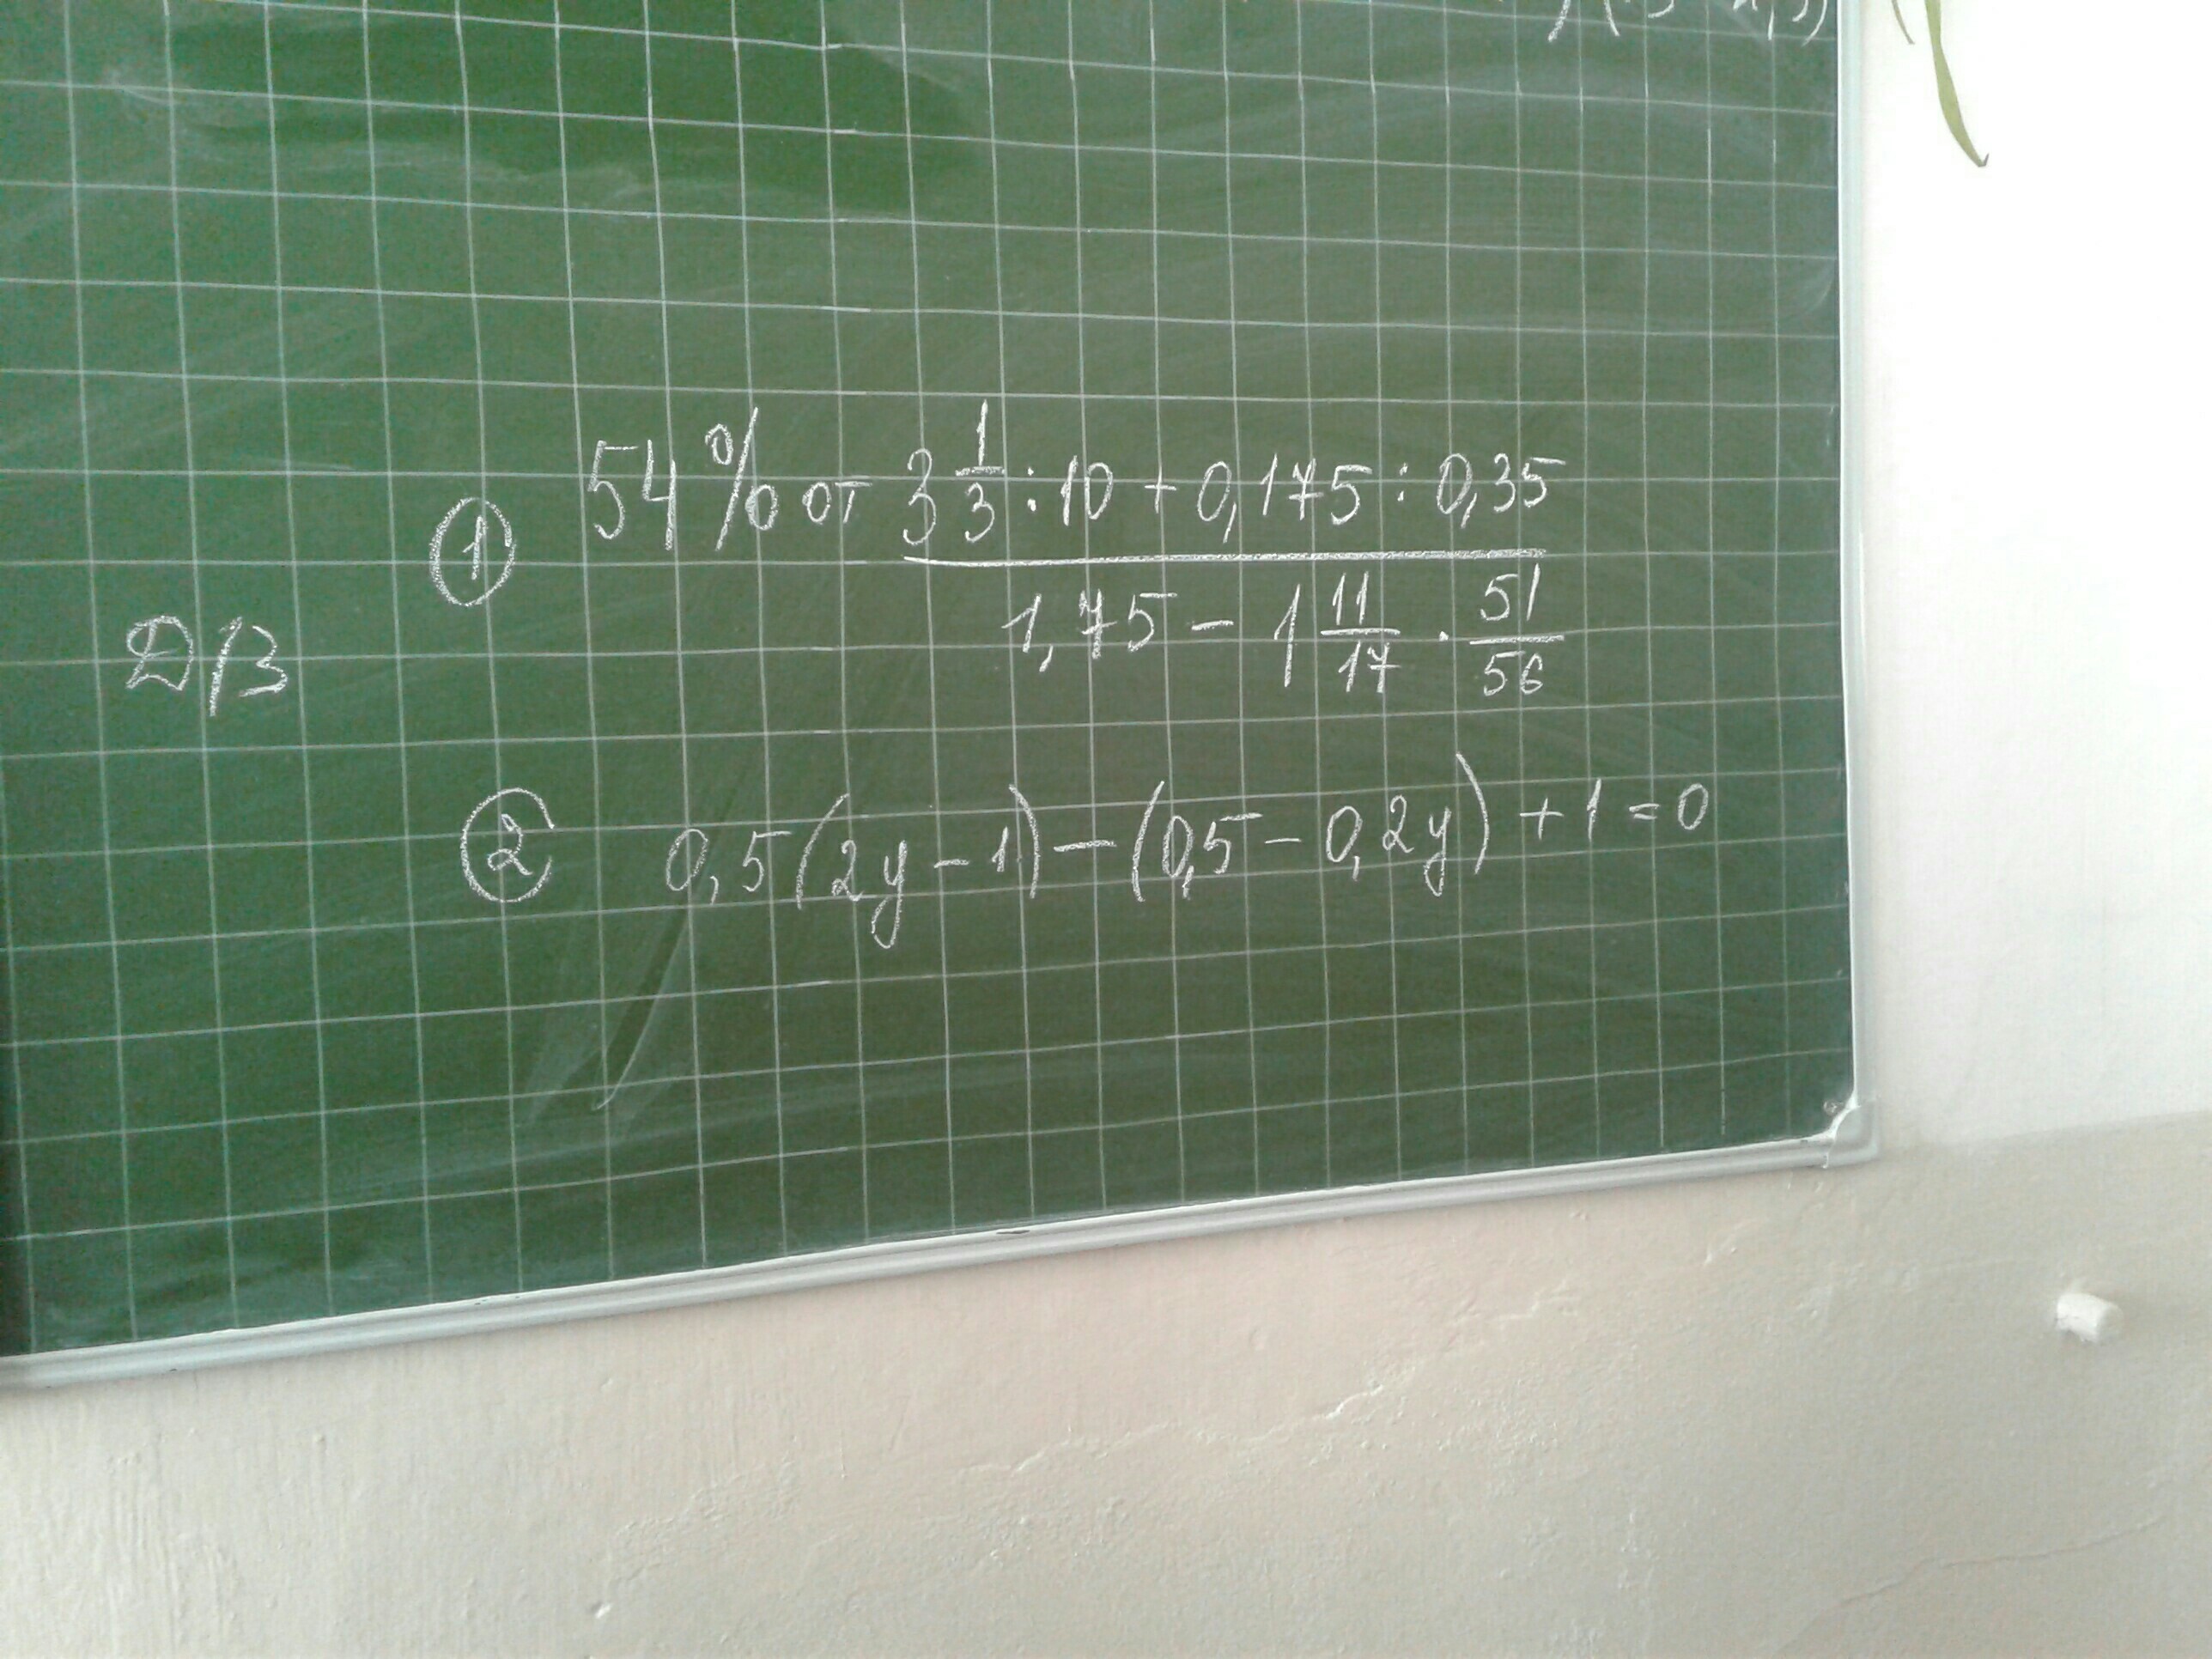 Д/З
① 54% от 3 1/3 : 10 + 0,175 : 0,35
1,75 - 1 11/17 · 51/56
② 0,5(2y - 1) - (0,5 - 0,2y) + 1 = 0